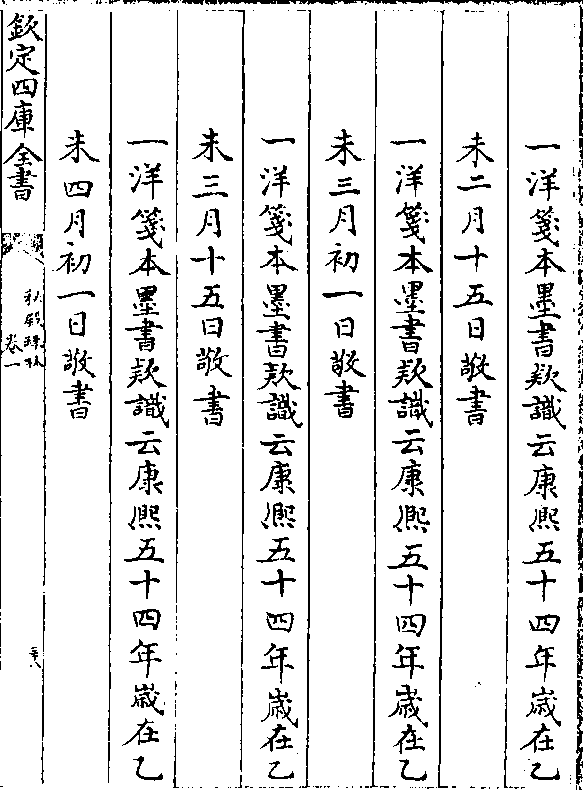 一洋箋本墨書欵識云康熙五十四年嵗在乙
未二月十五日敬書
一洋箋本墨書欵識云康熙五十四年嵗在乙
未三月初一日敬書
一洋箋本墨書欵識云康熙五十四年嵗在乙
未三月十五日敬書
一洋箋本墨書欵識云康熙五十四年嵗在乙
未四月初一日敬書
欽定四庫全書
秘殿珠林
卷一